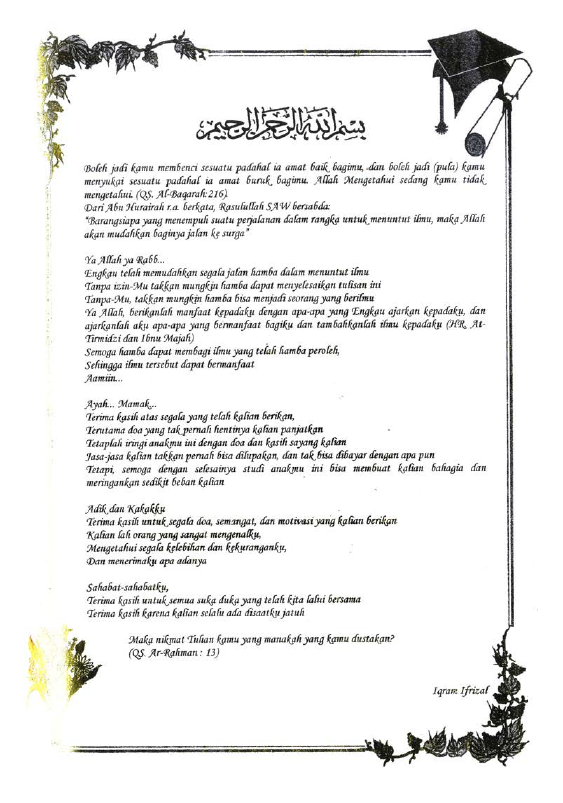 بسم الله الرحمن الرحيم
Boleh jadi kamu membenci sesuatu padahal ia amat baik bagimu, dan boleh jadi (pula) kamu
menyukai sesuatu padahal ia amat buruk bagimu. Allah Mengetahui sedang kamu tidak
mengetahui. (QS. Al-Baqarah:216).
Dari Abu Hurairah r.a. berkata, Rasulullah SAW bersabda:
"Barangsiapa yang menempuh suatu perjalanan dalam rangka untuk menuntut ilmu, maka Allah
akan mudahkan baginya jalan ke surga"
Ya Allah ya Rabb...
Engkau telah memudahkan segala jalan hamba dalam menuntut ilmu
Tanpa izin-Mu takkan mungkin hamba dapat menyelesaikan tulisan ini
Tanpa-Mu, takkan mungkin hamba bisa menjadi seorang yang berilmu
Ya Allah, berikanlah manfaat kepadaku dengan apa-apa yang Engkau ajarkan kepadaku, dan
ajarkanlah aku apa-apa yang bermanfaat bagiku dan tambahkanlah ilmu kepadaku (HR. At-
Tirmidzi dan Ibnu Majah)
Semoga hamba dapat membagi ilmu yang telah hamba peroleh,
Sehingga ilmu tersebut dapat bermanfaat
Aamiin...
Ayah... Mamak...
Terima kasih atas segala yang telah kalian berikan,
Terutama doa yang tak pernah hentinya kalian panjatkan
Tetaplah iringi anakmu ini dengan doa dan kasih sayang kalian
Jasa-jasa kalian takkan pernah bisa dilupakan, dan tak bisa dibayar dengan apa pun
Tetapi, semoga dengan selesainya studi anakmu ini bisa membuat kalian bahagia dan
meringankan sedikit beban kalian
Adik dan Kakakku
Terima kasih untuk segala doa, semangat, dan motivasi yang kalian berikan
Kalian lah orang yang sangat mengenalku,
Mengetahui segala kelebihan dan kekuranganku,
Dan menerimaku apa adanya
Sahabat-sahabatku,
Terima kasih untuk semua suka duka yang telah kita lalui bersama
Terima kasih karena kalian selalu ada disaatku jatuh
Maka nikmat Tuhan kamu yang manakah yang kamu dustakan?
(QS. Ar-Rahman : 13)
Iqram Ifrizal